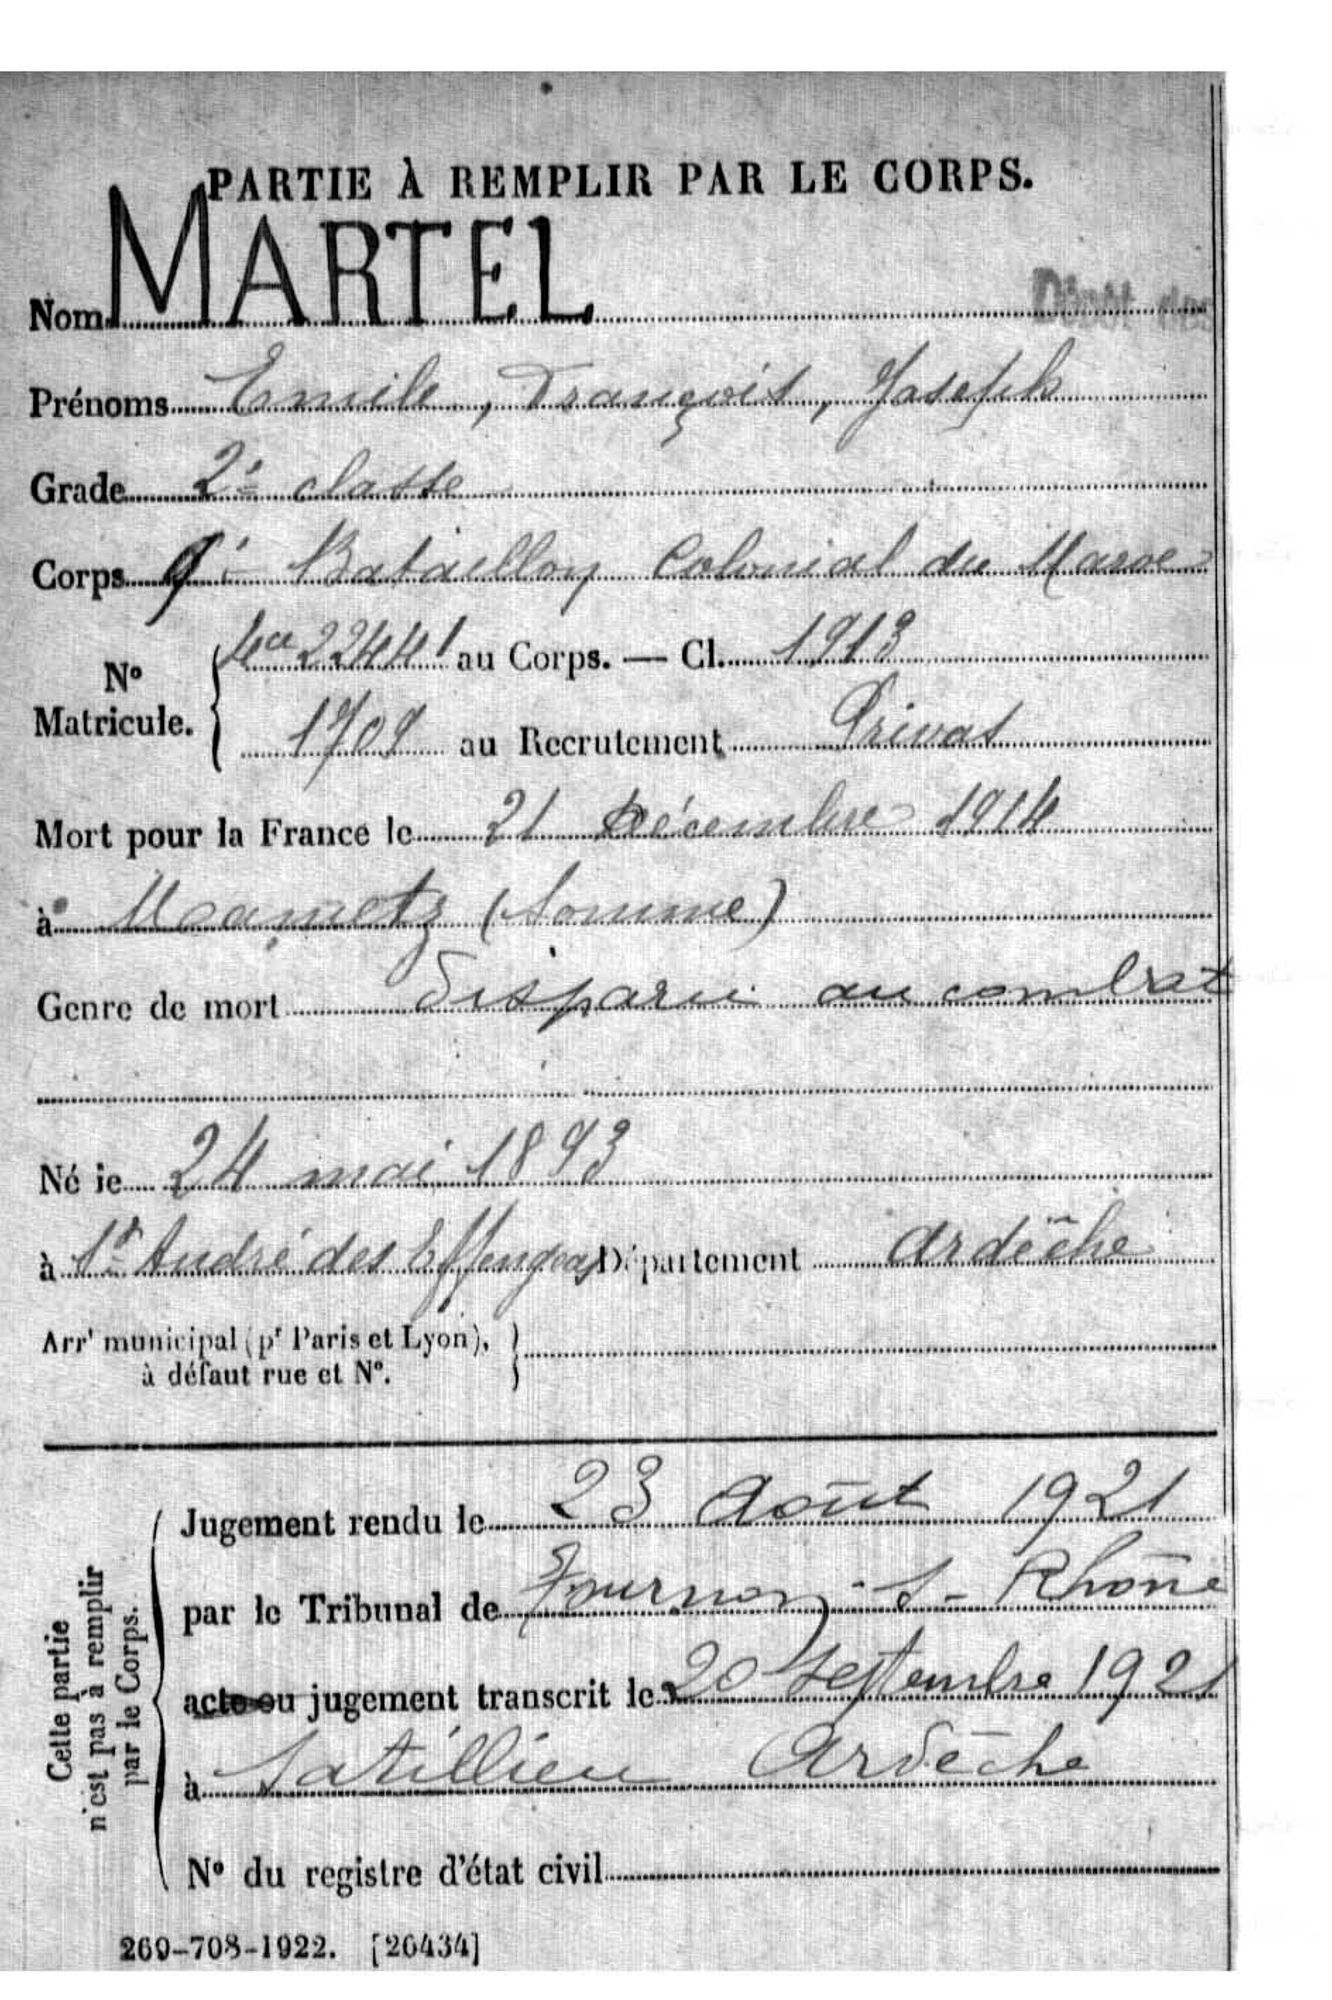 PARTIE À REMPLIR PAR LE CORPS.
Nom MARTEL
Dépôt des
Prénoms Emile, François, Joseph
Grade 2e classe
Corps 9e Bataillon Colonial du Maroc
4ce 2244 au Corps. — Cl. 1913
No Matricule.
1709 au Recrutement Privas
Mort pour la France le 21 Décembre 1914
à Mametz (Somme)
Genre de mort disparu au combat
Né le 24 mai 1893
à St André des Effengeas Département Ardèche
Arrt municipal (pr Paris et Lyon), à défaut rue et No.
Cette partie n'est pas à remplir par le Corps.
Jugement rendu le 23 Août 1921
par le Tribunal de Tournon - s - Rhône
acte ou jugement transcrit le 20 Septembre 1921
à Satillieu Ardèche
No du registre d'état civil
269-708-1922. [26434]